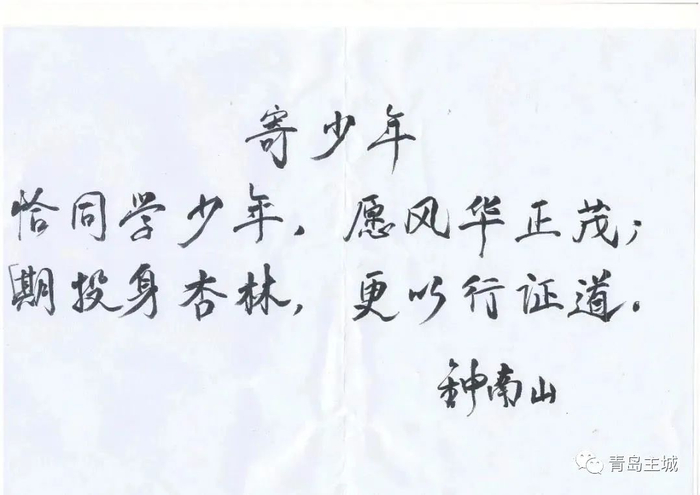 寄少年
恰同学少年，愿风华正茂；
期投身杏林，更以行证道。
钟南山
青岛主城